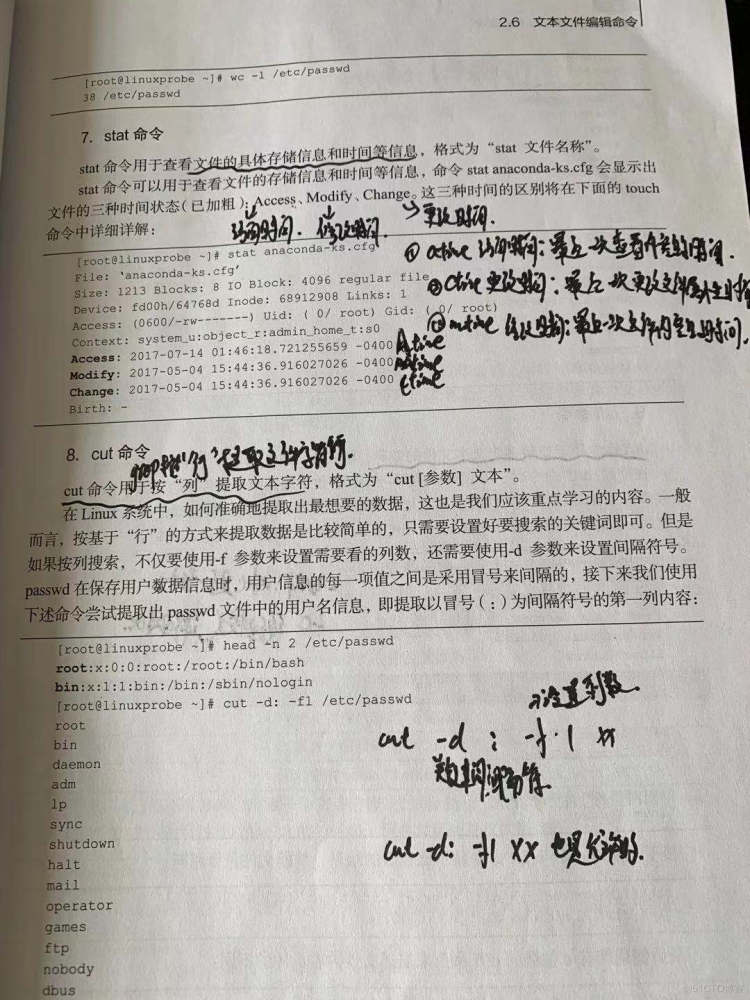 2.6 文本文件编辑命令
[root@linuxprobe ~]# wc -l /etc/passwd
38 /etc/passwd
7. stat 命令
stat 命令用于查看文件的具体存储信息和时间等信息，格式为“stat 文件名称”。
stat 命令可以用于查看文件的存储信息和时间等信息，命令 stat anaconda-ks.cfg 会显示出
文件的三种时间状态（已加粗）：Access、Modify、Change。这三种时间的区别将在下面的 touch
命令中详细详解：
访问时间. 修改时间. 更改时间.
[root@linuxprobe ~]# stat anaconda-ks.cfg
① atime 访问时间：最近一次查看内容的时间.
File: ‘anaconda-ks.cfg’
Size: 1213 Blocks: 8 IO Block: 4096 regular file
② ctime 更改时间：最近一次更改文件属性
Device: fd00h/64768d Inode: 68912908 Links: 1
Access: (0600/-rw-------) Uid: ( 0/ root) Gid: ( 0/ root)
③ mtime 修改时间：最近一次文件内容 时间.
Context: system_u:object_r:admin_home_t:s0
Access: 2017-07-14 01:46:18.721255659 -0400 Atime
Modify: 2017-05-04 15:44:36.916027026 -0400 Mtime
Change: 2017-05-04 15:44:36.916027026 -0400 Ctime
Birth: -
8. cut 命令
grep 按“行”提取文件字符行.
cut 命令用于按“列”提取文本字符，格式为“cut [参数] 文本”。
在 Linux 系统中，如何准确地提取出最想要的数据，这也是我们应该重点学习的内容。一般
而言，按基于“行”的方式来提取数据是比较简单的，只需要设置好要搜索的关键词即可。但是
如果按列搜索，不仅要使用-f 参数来设置需要看的列数，还需要使用-d 参数来设置间隔符号。
passwd 在保存用户数据信息时，用户信息的每一项值之间是采用冒号来间隔的，接下来我们使用
下述命令尝试提取出 passwd 文件中的用户名信息，即提取以冒号（:）为间隔符号的第一列内容：
[root@linuxprobe ~]# head -n 2 /etc/passwd
root:x:0:0:root:/root:/bin/bash
bin:x:1:1:bin:/bin:/sbin/nologin
[root@linuxprobe ~]# cut -d: -f1 /etc/passwd
设置列数.
root
cut -d : -f 1 xx
bin
间隔符.
daemon
adm
lp
sync
shutdown
cut -d: -f1 xx 也是允许的.
halt
mail
operator
games
ftp
nobody
dbus